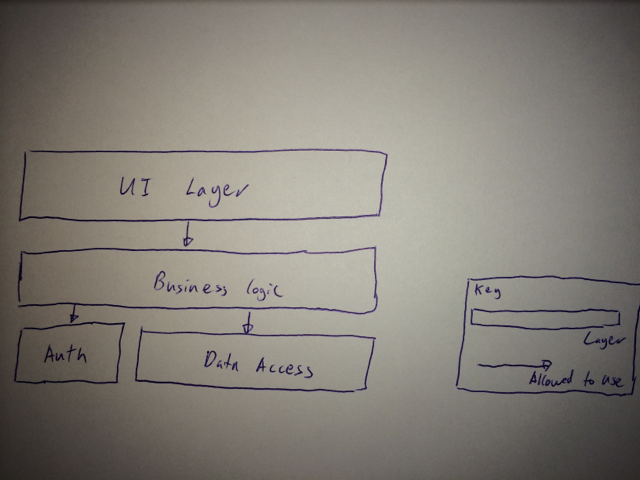 UI Layer
Business logic
Auth
Data Access
Key
Layer
Allowed to use